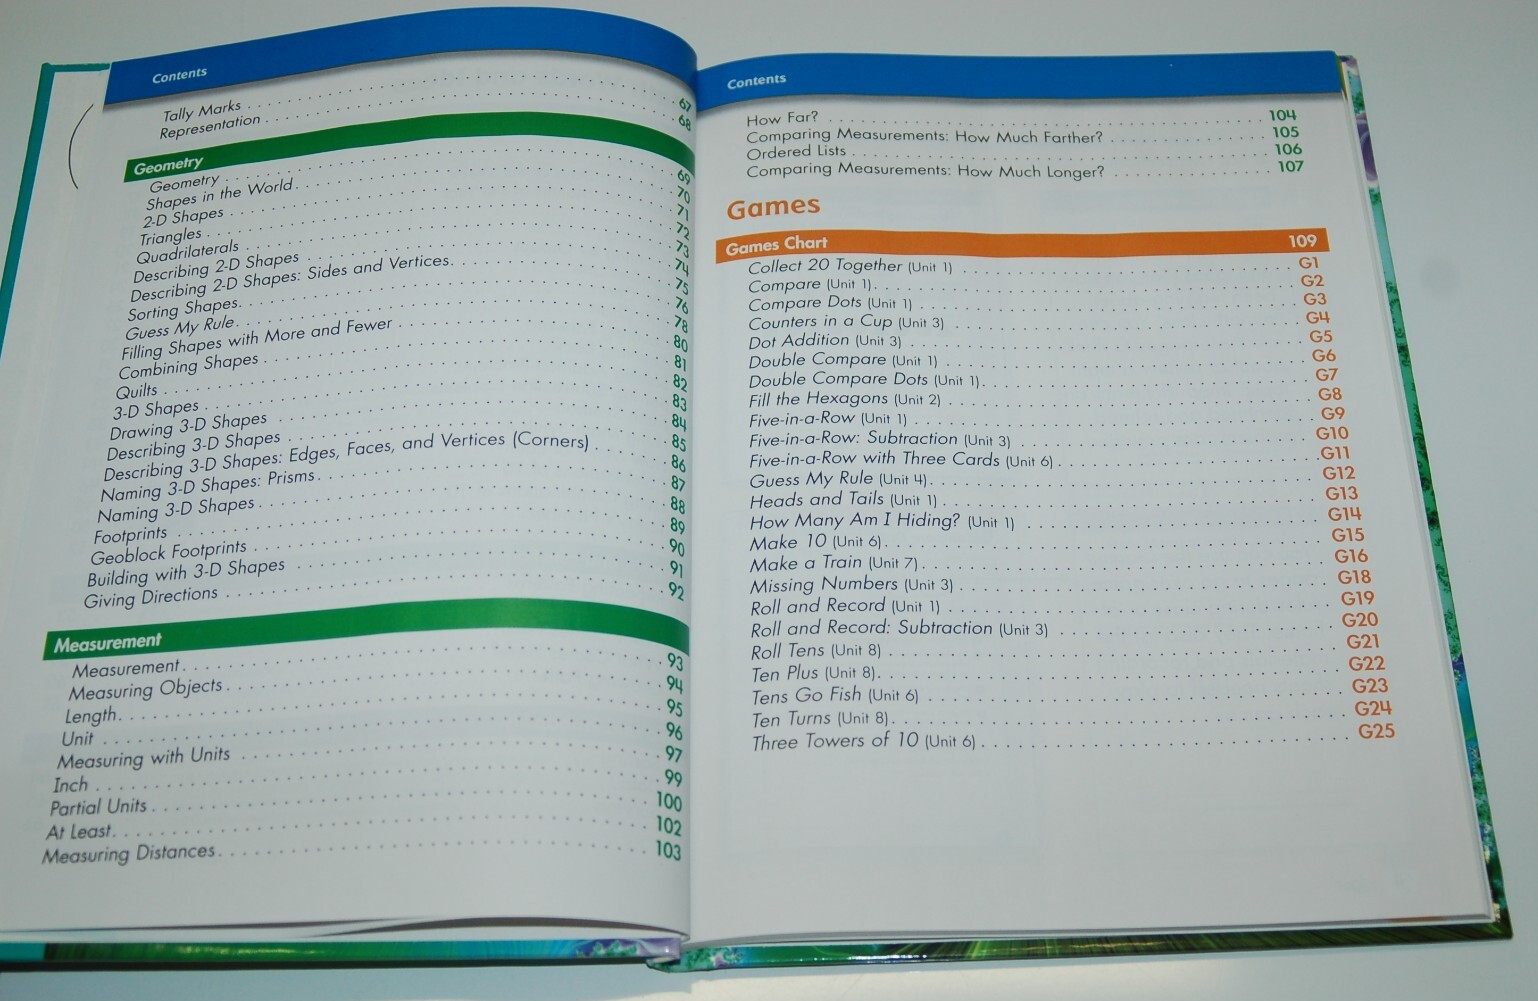 Contents
Tally Marks . . . . . 67
Representation . . . . . 68
Geometry
Geometry . . . . . 69
Shapes in the World . . . . . 70
2-D Shapes . . . . . 71
Triangles . . . . . 72
Quadrilaterals . . . . . 73
Describing 2-D Shapes . . . . . 74
Describing 2-D Shapes: Sides and Vertices . . . . . 75
Sorting Shapes . . . . . 76
Guess My Rule . . . . . 78
Filling Shapes with More and Fewer . . . . . 80
Combining Shapes . . . . . 81
Quilts . . . . . 82
3-D Shapes . . . . . 83
Drawing 3-D Shapes . . . . . 84
Describing 3-D Shapes . . . . . 85
Describing 3-D Shapes: Edges, Faces, and Vertices (Corners) . . . . . 86
Naming 3-D Shapes: Prisms . . . . . 87
Naming 3-D Shapes . . . . . 88
Footprints . . . . . 89
Geoblock Footprints . . . . . 90
Building with 3-D Shapes . . . . . 91
Giving Directions . . . . . 92
Measurement
Measurement . . . . . 93
Measuring Objects . . . . . 94
Length . . . . . 95
Unit . . . . . 96
Measuring with Units . . . . . 97
Inch . . . . . 99
Partial Units . . . . . 100
At Least . . . . . 102
Measuring Distances . . . . . 103
Contents
How Far? . . . . . 104
Comparing Measurements: How Much Farther? . . . . . 105
Ordered Lists . . . . . 106
Comparing Measurements: How Much Longer? . . . . . 107
Games
Games Chart 109
Collect 20 Together (Unit 1) . . . . . G1
Compare (Unit 1) . . . . . G2
Compare Dots (Unit 1) . . . . . G3
Counters in a Cup (Unit 3) . . . . . G4
Dot Addition (Unit 3) . . . . . G5
Double Compare (Unit 1) . . . . . G6
Double Compare Dots (Unit 1) . . . . . G7
Fill the Hexagons (Unit 2) . . . . . G8
Five-in-a-Row (Unit 1) . . . . . G9
Five-in-a-Row: Subtraction (Unit 3) . . . . . G10
Five-in-a-Row with Three Cards (Unit 6) . . . . . G11
Guess My Rule (Unit 4) . . . . . G12
Heads and Tails (Unit 1) . . . . . G13
How Many Am I Hiding? (Unit 1) . . . . . G14
Make 10 (Unit 6) . . . . . G15
Make a Train (Unit 7) . . . . . G16
Missing Numbers (Unit 3) . . . . . G18
Roll and Record (Unit 1) . . . . . G19
Roll and Record: Subtraction (Unit 3) . . . . . G20
Roll Tens (Unit 8) . . . . . G21
Ten Plus (Unit 8) . . . . . G22
Tens Go Fish (Unit 6) . . . . . G23
Ten Turns (Unit 8) . . . . . G24
Three Towers of 10 (Unit 6) . . . . . G25